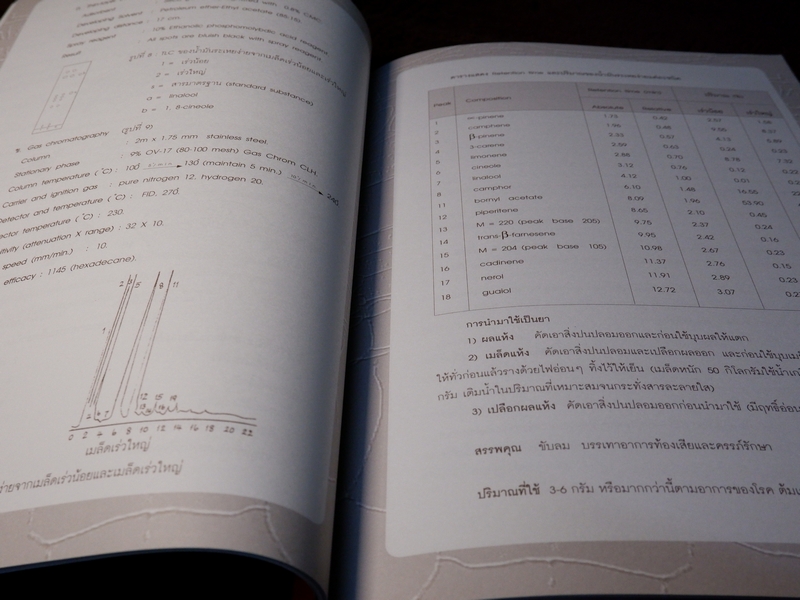 Developing distance : 17 cm
Spray reagent : 10% Ethanolic phosphomolybdic acid reagent
Result : All spots are bluish black with spray reagent
รูปที่ 8 TLC ของน้ำมันระเหยง่ายจากเมล็ดเร่วน้อยและเร่วใหญ่
1 = เร่วน้อย
2 = เร่วใหญ่
s = สารมาตรฐาน (standard substance)
a = linalool
b = 1, 8-cineole
Gas chromatography (รูปที่ 9)
Column : 2m x 1.75 mm stainless steel.
Stationary phase : 9% OV-17 (80-100 mesh) Gas Chrom CLH.
Column temperature (°C) : 100 130 (maintain 5 min.) 240
Carrier and ignition gas : pure nitrogen 12, hydrogen 20.
Detector and temperature (°C) : FID, 270.
temperature (°C) : 230.
(attenuation X range) : 32 X 10.
speed (mm/min.) : 10.
efficacy : 1145 (hexadecane).
2 3 5 8 11
1
12 15 19
0 2 4 6 8 10 12 14 16 18 20 22
เมล็ดเร่วใหญ่
ง่ายจากเมล็ดเร่วน้อยและเมล็ดเร่วใหญ่
Peak Composition Retention time (min) ปริมาณ
Absolute Relative เร่วน้อย เร่วใหญ่
1 ∝-pinene 1.75 0.42 2.57
2 camphene 1.98 0.48 9.55
3 β-pinene 2.33 0.57
4 3-carene 2.59 0.63 0.24 0.33
5 limonene 2.88 0.70 8.78
6 cineole 3.12 0.76 0.12
7 linalool 4.12 1.00 0.01
8 camphor 6.10 1.48 16.55
11 bornyl acetate 8.09 1.96 53.90
12 piperitene 8.65 2.10 0.45
13 M = 220 (peak base 205) 9.75 2.37 0.24
14 trans-β-farnesene 9.95 2.42 0.16
15 M = 204 (peak base 105) 10.98 2.67 0.23
16 cadinene 11.37 2.76 0.15
17 nerol 11.91 2.89 0.23
18 guaiol 12.72 3.07
การนำมาใช้เป็นยา
1) ผลแห้ง คัดเอาสิ่งปนปลอมออกและก่อนใช้บุบผลให้แตก
2) เมล็ดแห้ง คัดเอาสิ่งปนปลอมและเปลือกผลออก และก่อนใช้บุบ
ให้ทั่วก่อนแล้วรางด้วยไฟอ่อนๆ ทิ้งไว้ให้เย็น (เมล็ดหนัก 50 กิโลกรัมใช้น้ำ
กรัม เติมน้ำในปริมาณที่เหมาะสมจนกระทั่งสารละลายใส)
3) เปลือกผลแห้ง คัดเอาสิ่งปนปลอมออกก่อนนำมาใช้ (มีฤทธิ์อ่อน
สรรพคุณ ขับลม บรรเทาอาการท้องเสียและครรภ์รักษา
ปริมาณที่ใช้ 3-6 กรัม หรือมากกว่านี้ตามอาการของโรค ต้ม